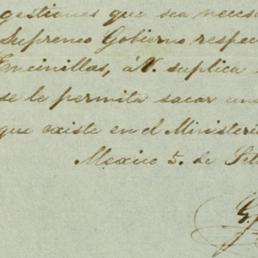 gestiones que sea neces
Supremo Gobierno respec
Encinillas, á V. suplica
se le permita sacar un
que existe en el Ministeri
Mexico 5. de Se